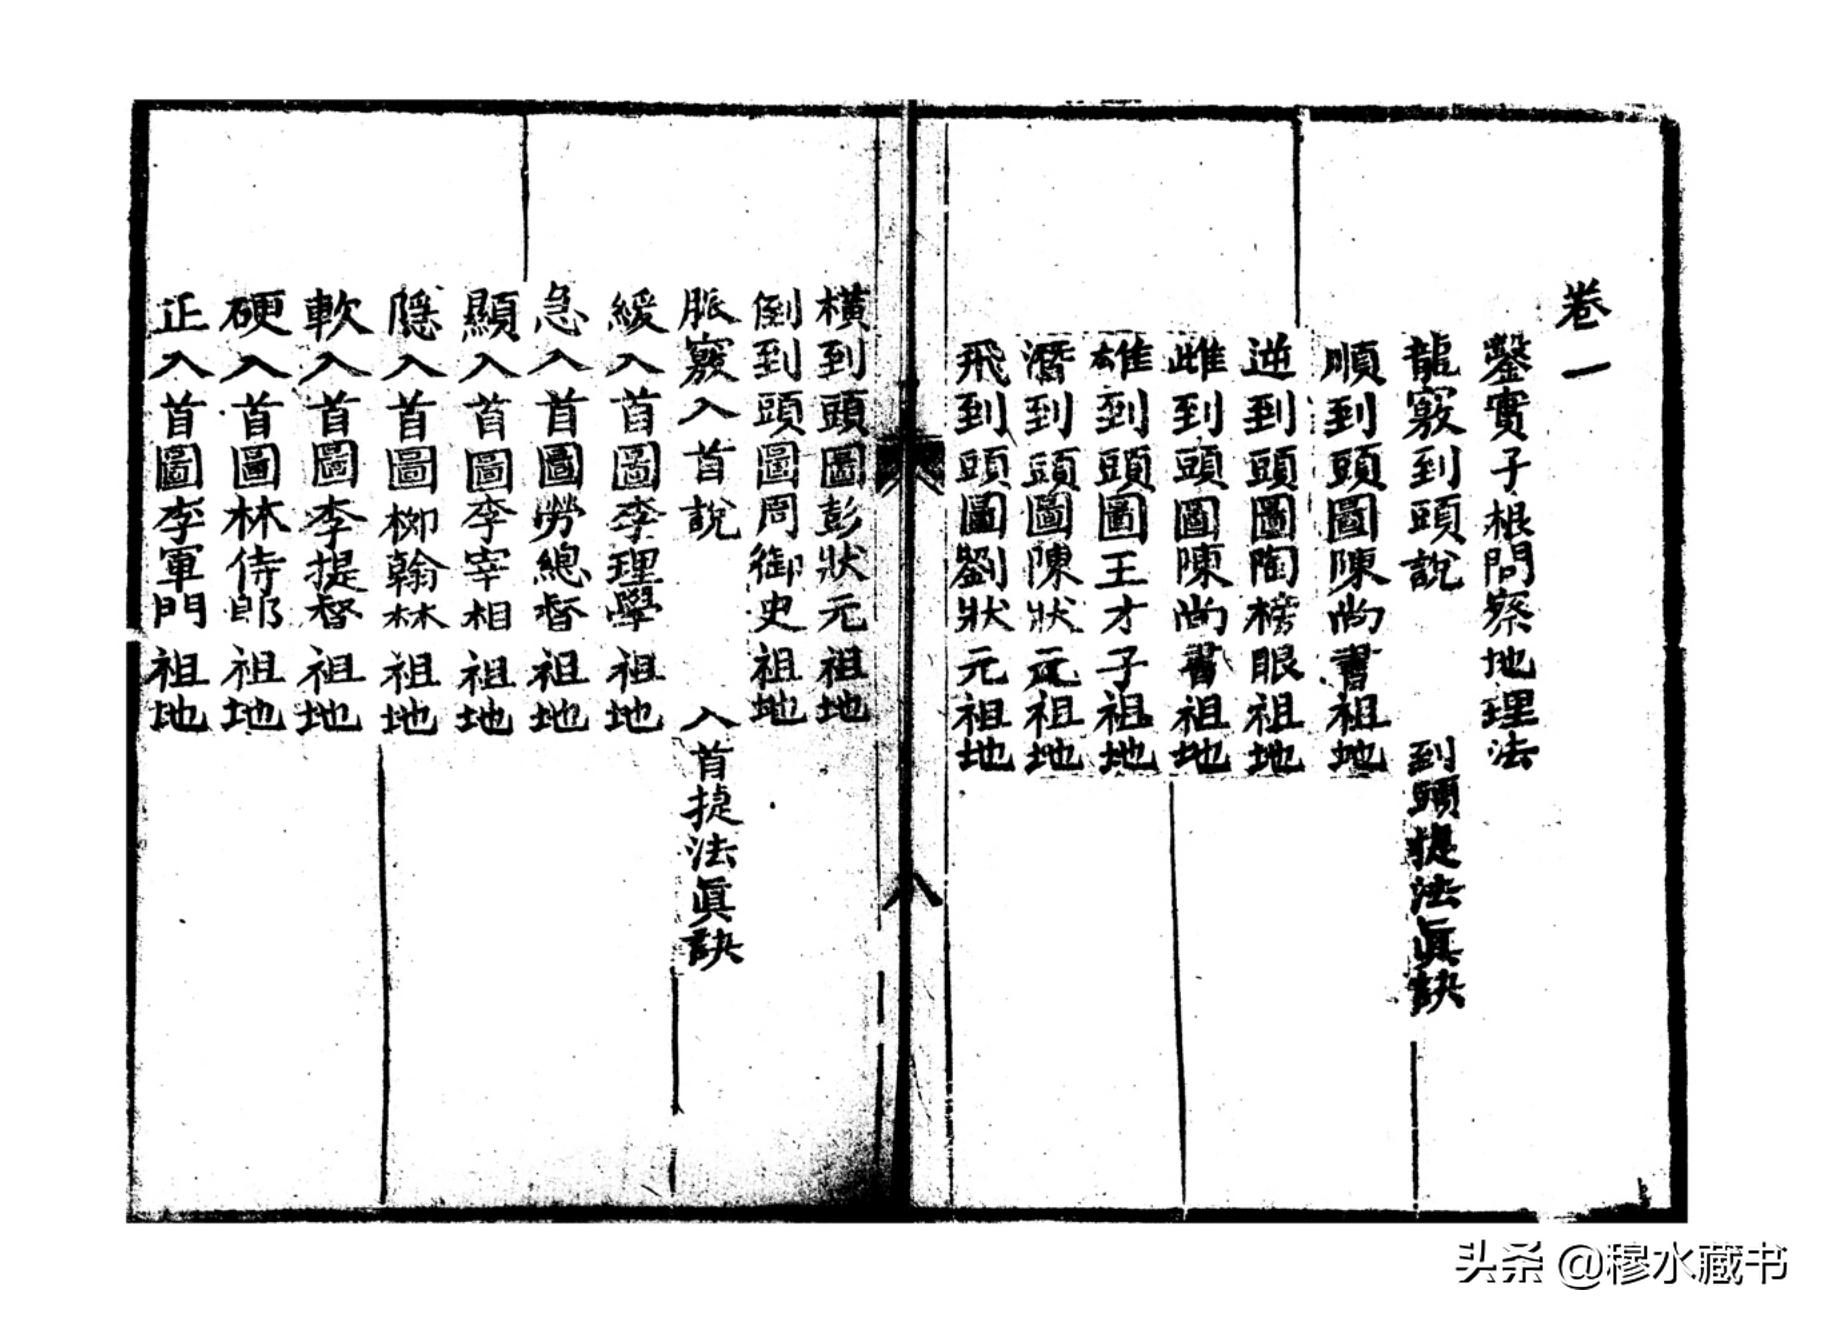 卷一
鑿實子根問察地理法
龍竅到頭說　到頭提法眞訣
順到頭圖陳尚書祖地
逆到頭圖陶榜眼祖地
雌到頭圖陳尚書祖地
雄到頭圖王才子祖地
潛到頭圖陳狀元祖地
飛到頭圖劉狀元祖地
八
橫到頭圖彭狀元祖地
倒到頭圖周御史祖地
脈竅入首說　入首提法眞訣
緩入首圖李理學祖地
急入首圖勞總督祖地
顯入首圖李宰相祖地
隱入首圖柳翰林祖地
軟入首圖李提督祖地
硬入首圖林侍郎祖地
正入首圖李軍門祖地
头条 @穆水藏书